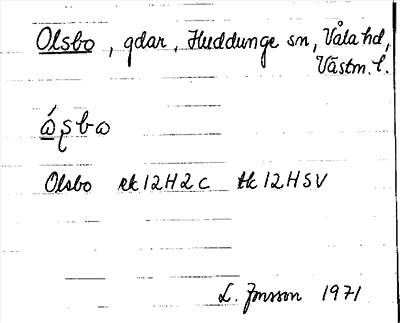 Olsbo, gdar, Huddunge sn, Våla hd,
Västm. l.
ώʂbω
Olsbo ek 12H2c tk 12HSV
L. Jonsson 1971